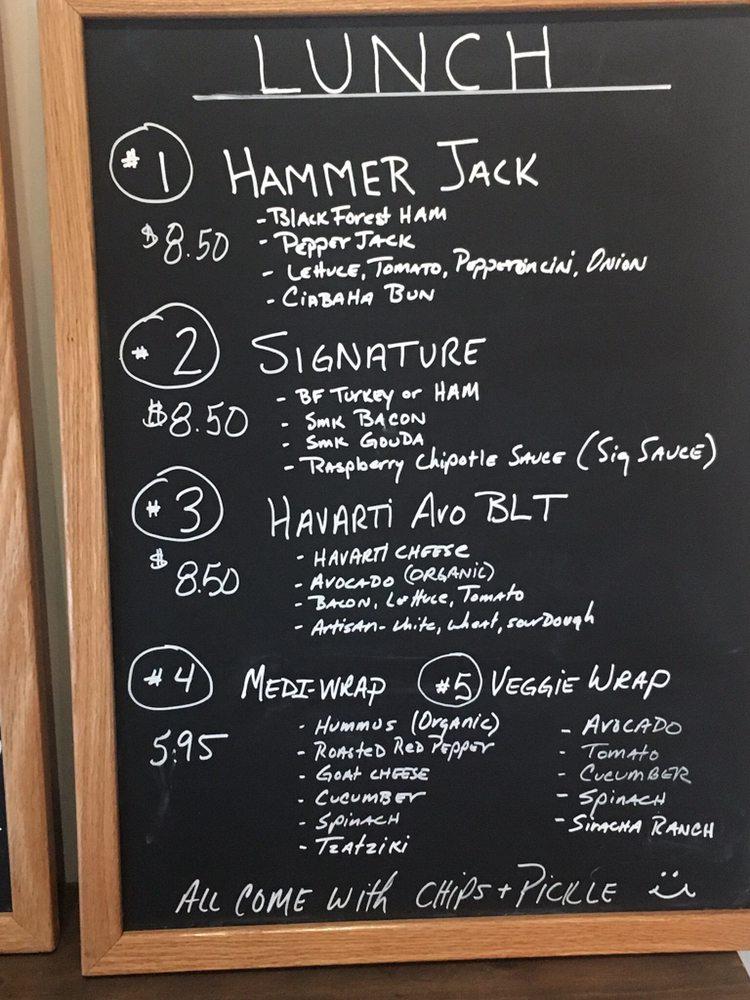 LUNCH
#1 HAMMER JACK
$8.50
- Black Forest HAM
- Pepper JACK
- LETTUCE, TOMATO, Pepperoncini, ONION
- CIABAttA BUN
#2 SIGNATURE
$8.50
- BF Turkey or HAM
- SMK BACON
- SMK GOUDA
- RASpberry Chipotle SAUCE (Sig SAUCE)
#3 HAVARTi Avo BLT
$8.50
- HAVARTI CHEESE
- AVOCADO (ORGANIC)
- BACON, LettUCE, TomATo
- ArtisAn - white, wheat, sourDough
#4 MEDI-WRAP
5.95
- Hummus (Organic)
- ROASTED RED PEPPER
- GOAT CHEESE
- CUCUMBER
- SPINACH
- TZATZIKI
#5 VEGGIE WRAP
- AVOCADO
- TOMATO
- CUCUMBER
- SPINACH
- SIRACHA RANCH
ALL COME WITH CHIPS + PICKLE